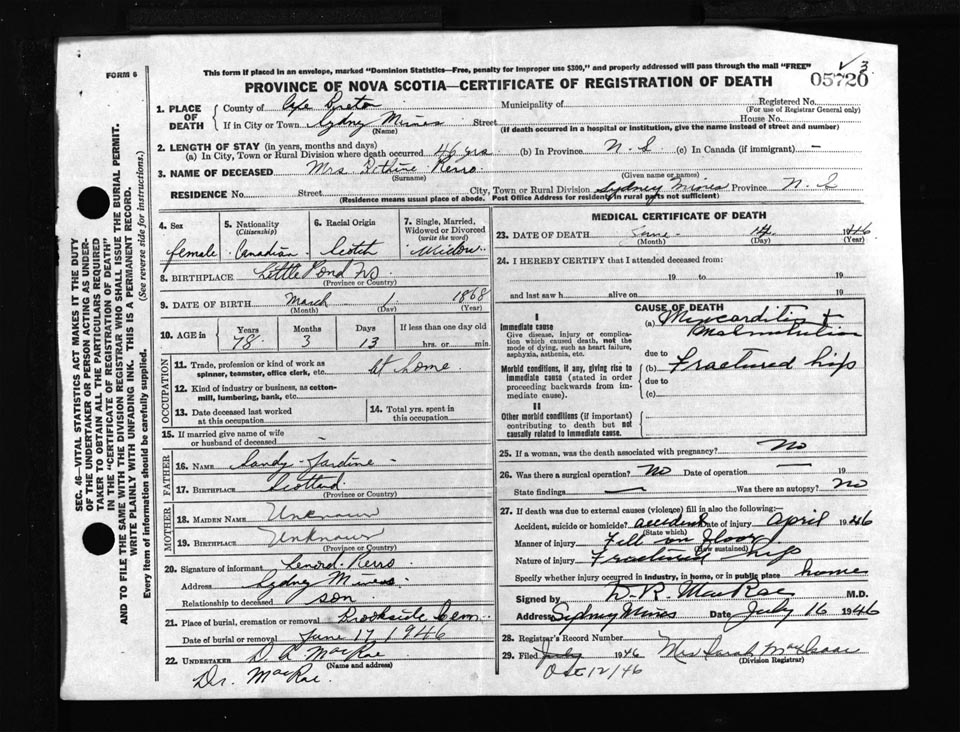 FORM 6
This form if placed in an envelope, marked "Dominion Statistics—Free, penalty for improper use $300," and properly addressed will pass through the mail "FREE"
PROVINCE OF NOVA SCOTIA—CERTIFICATE OF REGISTRATION OF DEATH
05720
1. PLACE OF DEATH
County of Cape Breton Municipality of Registered No.
(For use of Registrar General only)
If in City or Town Sydney Mines Street House No.
(Name) (If death occurred in a hospital or institution, give the name instead of street and number)
2. LENGTH OF STAY (in years, months and days)
(a) In City, Town or Rural Division where death occurred 46 yrs. (b) In Province N. S (c) In Canada (if immigrant) —
3. NAME OF DECEASED Mrs
(Surname) (Given name or names)
RESIDENCE No. Street City, Town or Rural Division Sydney Mines Province N. S
(Residence means usual place of abode. Post Office Address for residents in rural parts not sufficient)
4. Sex
female
5. Nationality
(Citizenship)
Canadian
6. Racial Origin
Scotch
7. Single, Married, Widowed or Divorced
(write the word)
Widow
8. BIRTHPLACE Little Pond NS
(Province or Country)
9. DATE OF BIRTH March 1 1868
(Month) (Day) (Year)
10. AGE in
Years Months Days If less than one day old
78 3 13 hrs. or min.
OCCUPATION
11. Trade, profession or kind of work as
spinner, teamster, office clerk, etc. At home
12. Kind of industry or business, as cotton-
mill, lumbering, bank, etc.
13. Date deceased last worked
at this occupation
14. Total yrs. spent in
this occupation
15. If married give name of wife
or husband of deceased -
FATHER
16. NAME Sandy Jardine
17. BIRTHPLACE Scotland
(Province or Country)
MOTHER
18. MAIDEN NAME Unknown
19. BIRTHPLACE Unknown
(Province or Country)
20. Signature of informant
Address Sydney Mines
Relationship to deceased son
21. Place of burial, cremation or removal Brookside Cem
Date of burial or removal June 17 1946
22. UNDERTAKER D. A MacRae
(Name and address)
Dr. MacRae
MEDICAL CERTIFICATE OF DEATH
23. DATE OF DEATH June 14 1946
(Month) (Day) (Year)
24. I HEREBY CERTIFY that I attended deceased from:
19 to 19
and last saw h alive on 19
CAUSE OF DEATH
I
Immediate cause
Give disease, injury or complica-
tion which caused death, not the
mode of dying, such as heart failure,
asphyxia, asthenia, etc.
(a) Myocarditis +
Malnutrition
due to
Morbid conditions, if any, giving rise to
immediate cause (stated in order
proceeding backwards from im-
mediate cause).
(b) Fractured hip
due to
(c)
II
Other morbid conditions (if important)
contributing to death but not
causally related to immediate cause.
25. If a woman, was the death associated with pregnancy? No
26. Was there a surgical operation? No Date of operation — 19
State findings — Was there an autopsy? No
27. If death was due to external causes (violence) fill in also the following:—
Accident, suicide or homicide? accident Date of injury April 1946
(State which)
Manner of injury Fell on floor
(How sustained)
Nature of injury Fractured hip
Specify whether injury occurred in industry, in home, or in public place home
Signed by D. R. MacRae M.D.
Address Sydney Mines Date July 16 1946
28. Registrar's Record Number
29. Filed July 1946 Mrs Sarah MacIsaac
(Division Registrar)
Oct 12/46
SEC. 46—VITAL STATISTICS ACT MAKES IT THE DUTY
OF THE UNDERTAKER OR PERSON ACTING AS UNDER-
TAKER TO OBTAIN ALL THE PARTICULARS REQUIRED
IN THE "CERTIFICATE OF REGISTRATION OF DEATH"
AND TO FILE THE SAME WITH THE DIVISION REGISTRAR WHO SHALL ISSUE THE BURIAL PERMIT.
WRITE PLAINLY WITH UNFADING INK. THIS IS A PERMANENT RECORD.
Every item of information should be carefully supplied. (See reverse side for instructions.)